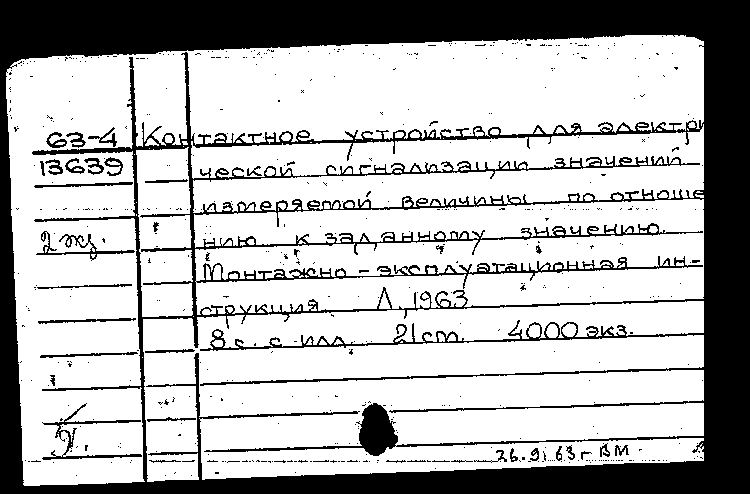 63-4 Контактное устройство для электри
13639 ческой сигнализации значений
измеряемой величины по отноше
2 экз. нию к заданному значению.
Монтажно-эксплуатационная ин-
струкция. Л., 1963
8 с. с илл. 21 cm 4000 экз.
26.9.63 г ВМ